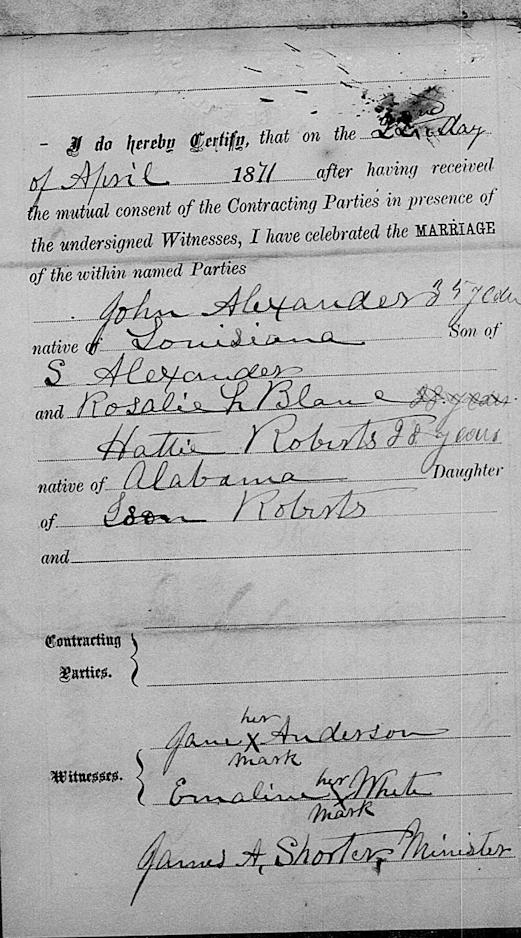 - I do hereby Certify, that on the day
of April 1871 after having received
the mutual consent of the Contracting Parties in presence of
the undersigned Witnesses, I have celebrated the MARRIAGE
of the within named Parties
John Alexander 35 years
native of Louisiana Son of
S Alexander
and Rosalie L Blanc 28 years
Hattie Roberts 28 years
native of Alabama Daughter
of Roberts
and
Contracting
Parties.
her
Jane X Anderson
mark
Witnesses.
her
Emaline X White
mark
James A. Shorter, Minister